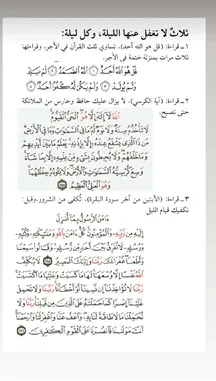 ثلاثٌ لا تغفل عنها الليلة، وكل ليلة:
١-قراءة: (قل هو الله أحد)، تساوي ثلث القرآن في الأجر، وقراءتها
ثلاث مرات بمنزلة ختمة في الأجر.
قُلْ هُوَ ٱللَّهُ أَحَدٌ ۝١ ٱللَّهُ ٱلصَّمَدُ ۝٢ لَمْ يَلِدْ
وَلَمْ يُولَدْ ۝٣ وَلَمْ يَكُن لَّهُۥ كُفُوًا أَحَدٌۢ ۝٤
٢-قراءة: (آية الكرسي)، لا يزال عليك حافظ وحارس من الملائكة
حتى تصبح.
ٱللَّهُ لَآ إِلَٰهَ إِلَّا هُوَ ٱلْحَىُّ ٱلْقَيُّومُ
لَا تَأْخُذُهُۥ سِنَةٌ وَلَا نَوْمٌ لَّهُۥ مَا فِى ٱلسَّمَٰوَٰتِ وَمَا فِى ٱلْأَرْضِ
مَن ذَا ٱلَّذِى يَشْفَعُ عِندَهُۥٓ إِلَّا بِإِذْنِهِۦ يَعْلَمُ مَا بَيْنَ أَيْدِيهِمْ
وَمَا خَلْفَهُمْ وَلَا يُحِيطُونَ بِشَىْءٍ مِّنْ عِلْمِهِۦٓ إِلَّا بِمَا شَآءَ
وَسِعَ كُرْسِيُّهُ ٱلسَّمَٰوَٰتِ وَٱلْأَرْضَ وَلَا يَـُٔودُهُۥ حِفْظُهُمَا
وَهُوَ ٱلْعَلِىُّ ٱلْعَظِيمُ ۝٢٥٥
٣-قراءة: (الآيتين من آخر سورة البقرة)، تُكفى من الشرور، وقيل:
تكفيك قيام الليل
ءَامَنَ ٱلرَّسُولُ بِمَآ أُنزِلَ
إِلَيْهِ مِن رَّبِّهِۦ وَٱلْمُؤْمِنُونَ كُلٌّ ءَامَنَ بِٱللَّهِ وَمَلَٰٓئِكَتِهِۦ وَكُتُبِهِۦ
وَرُسُلِهِۦ لَا نُفَرِّقُ بَيْنَ أَحَدٍ مِّن رُّسُلِهِۦ وَقَالُوا۟ سَمِعْنَا
وَأَطَعْنَا غُفْرَانَكَ رَبَّنَا وَإِلَيْكَ ٱلْمَصِيرُ ۝٢٨٥ لَا يُكَلِّفُ ٱللَّهُ
نَفْسًا إِلَّا وُسْعَهَا لَهَا مَا كَسَبَتْ وَعَلَيْهَا مَا ٱكْتَسَبَتْ
رَبَّنَا لَا تُؤَاخِذْنَآ إِن نَّسِينَآ أَوْ أَخْطَأْنَا رَبَّنَا وَلَا تَحْمِلْ
عَلَيْنَآ إِصْرًا كَمَا حَمَلْتَهُۥ عَلَى ٱلَّذِينَ مِن قَبْلِنَا رَبَّنَا وَلَا
تُحَمِّلْنَا مَا لَا طَاقَةَ لَنَا بِهِۦ وَٱعْفُ عَنَّا وَٱغْفِرْ لَنَا وَٱرْحَمْنَآ
أَنتَ مَوْلَىٰنَا فَٱنصُرْنَا عَلَى ٱلْقَوْمِ ٱلْكَٰفِرِينَ ۝٢٨٦